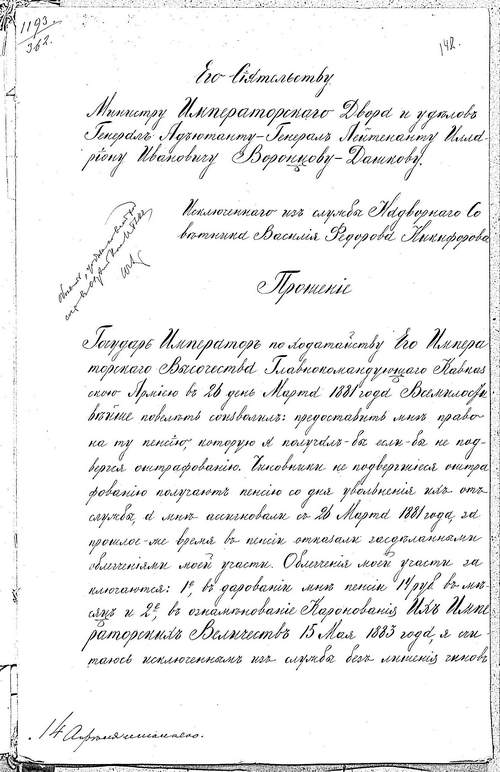 1193
362.
142.
Его Сіятельству
Министру Императорскаго Двора и удѣловъ
Генералъ Адъютанту-Генералъ Лейтенанту Илла-
ріону Ивановичу Воронцову-Дашкову.
Исключеннаго изъ службы Надворнаго Со
вѣтника Василія Ѳедорова Никифорова
Прошеніе
Государь Императоръ по ходатайству Его Импера
торскаго Высочества Главнокомандующаго Кавказ
скою Арміею въ 26 день Марта 1881 года Всемилостив
вѣйше повелѣть соизволилъ: предоставить мнѣ право
на ту пенсію, которую я получалъ-бы если-бы не под-
вергся оштрафованію. Чиновники не подвергшіеся оштра
фованію получаютъ пенсію со дня увольненія ихъ отъ
службы, а мнѣ ассигновали съ 26 Марта 1881 года, за
прошлое-же время въ пенсіи отказали засдѣланными
облегченіями моей участи. Облегченія моей участи за
ключаются: 1е, въ дарованіи мнѣ пенсіи 14 руб въ мѣ-
сяцъ и 2е, въ ознаменованіе Каронованія Ихъ Импе
раторскихъ Величествъ 15 Мая 1883 года, я счи-
таюсь исключеннымъ изъ службы безъ лишенія чиновъ
14